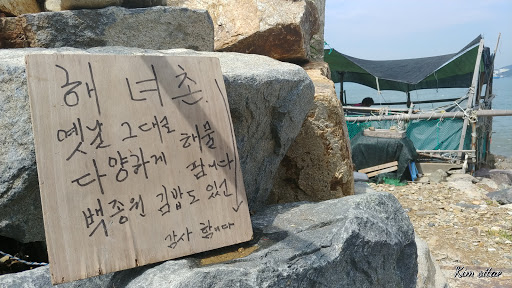 해녀촌
옛날 그대로 해물
다양하게 팝니다
백종원 김밥도 있선
감사 합니다
Kim sitae